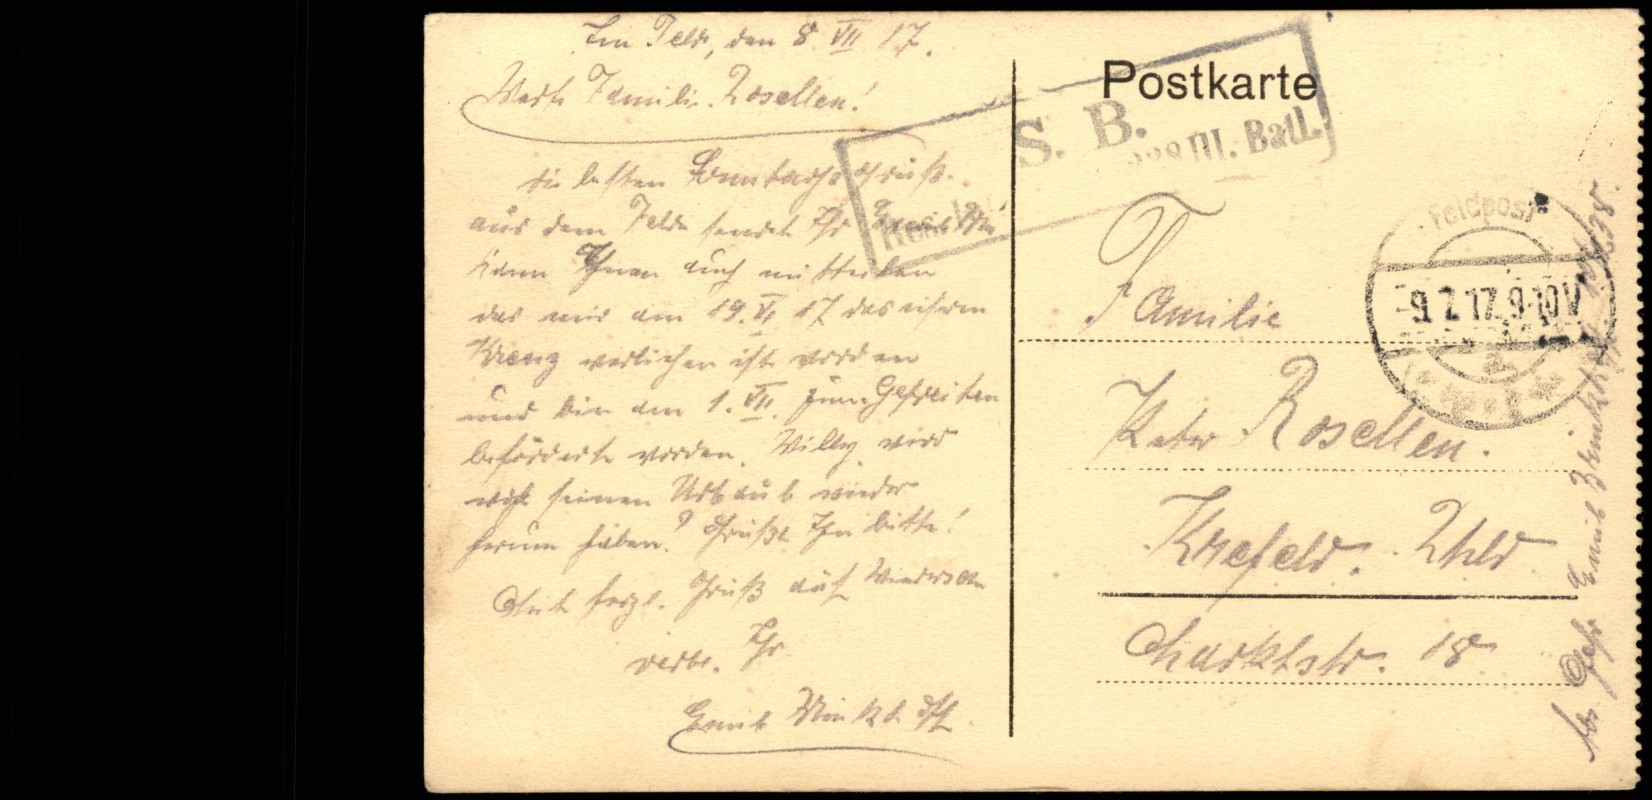 Im Feld, den 8. VII 17.
Werte Familie Rosellen!
die besten Sonntagsgrüß.
aus dem Felde sendet Ihr
kann Ihnen auch mitteilen
das mir am 19. VI. 17 das eiserne
Kreuz verliehen ist worden
und bin am 1. VII. zum Gefreiten
befördert worden. Willy wird
seinen Urlaub wieder
herum haben? Grüßt Ihn bitte!
Mit herzl. Gruß auf Wiedersehn
verbl. Ihr
Emil
Postkarte
S. B.
III. Batl.
Familie
Peter Rosellen.
Krefeld. Rhld
Marktstr. 18
Feldpost
9.7.17. 9-10V
Abs. Gefr. Emil